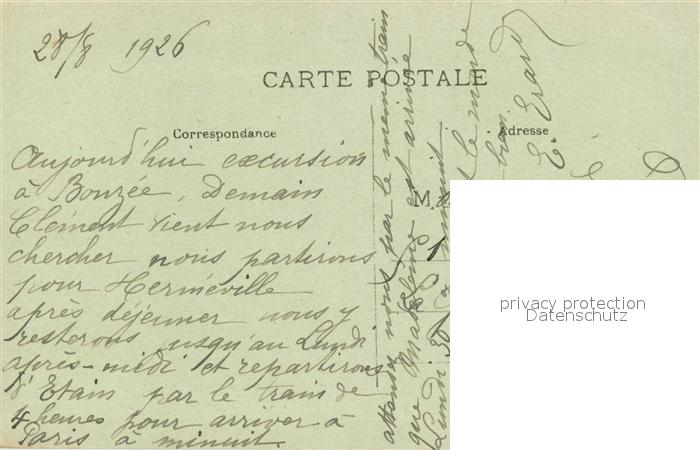 28/8 1926
CARTE POSTALE
Correspondance
Adresse
Aujourd'hui excursion
à Bonzée, Demain
Clément vient nous
chercher nous partirons
pour Herméville
après déjeuner nous y
resterons jusqu'au Lundi
après-midi et repartirons
d'Etain par le train de
4 heures pour arriver à
Paris à minuit.
attendez nous par le même train
que Madeleine est arrivée
Lundi 30 à minuit
le monde
bien
E. Erard
M
privacy protection
Datenschutz